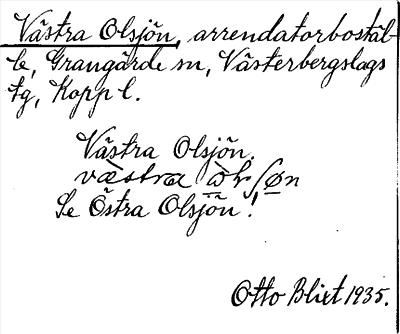 Västra Olsjön, arrendatorbostäl-
le, Grangärde sn, Västerbergslags
tg, Kopp l.
Västra Olsjön.
væstra
Se Östra Olsjön!
Otto Blixt 1935.